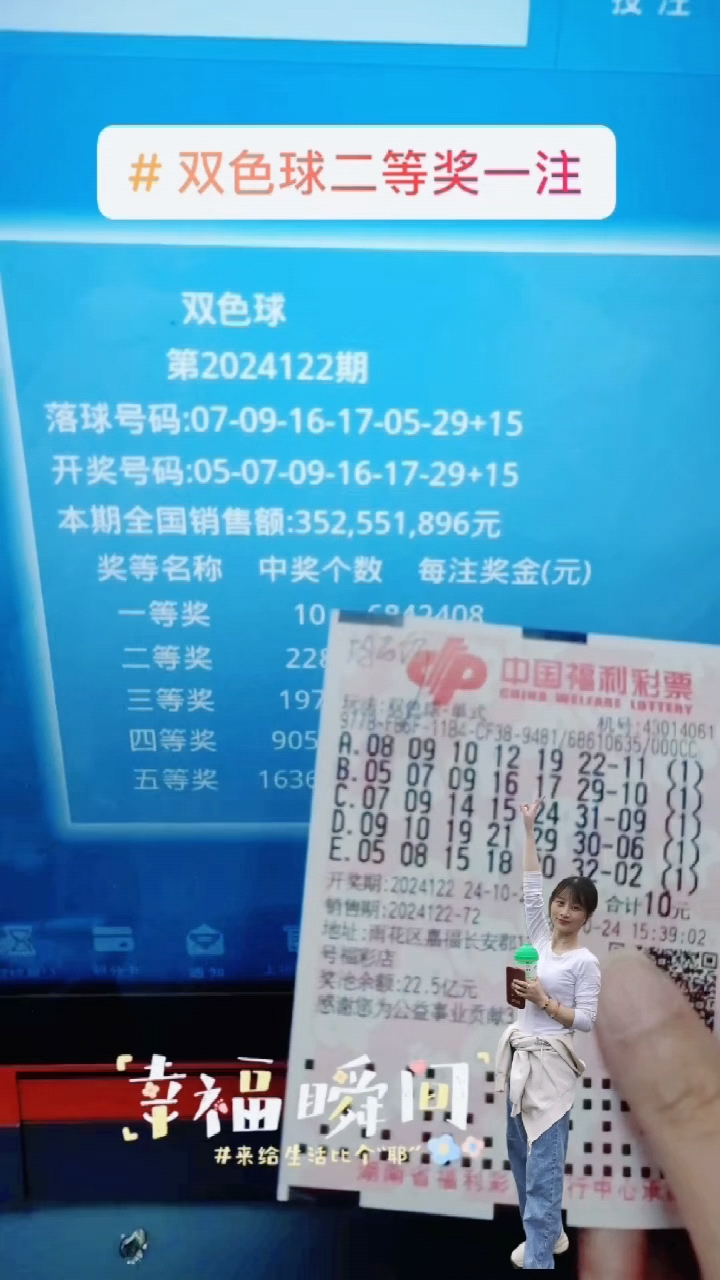 投注
# 双色球二等奖一注
双色球
第2024122期
落球号码:07-09-16-17-05-29+15
开奖号码:05-07-09-16-17-29+15
本期全国销售额:352,551,896元
奖等名称 中奖个数 每注奖金(元)
一等奖 10 6842408
二等奖 228
三等奖 197
四等奖 905
五等奖 1636
中国福利彩票
CHINA WELFARE LOTTERY
玩法:双色球-单式 机号:43014061
977B-FB6F-11B4-CF38-9481/68610635/000CC
A.08 09 10 12 19 22-11 (1)
B.05 07 09 16 17 29-10 (1)
C.07 09 14 15 24 31-09 (1)
D.09 10 19 21 29 30-06 (1)
E.05 08 15 18 32-02 (1)
开奖期:2024122 24-10- 合计10元
销售期:2024122-72 -24 15:39:02
地址:雨花区嘉福长安郡
号福彩店
奖池余额:22.5亿元
感谢您为公益事业贡献3
幸福瞬间
#来给生活比个“耶”
湖南省福利彩 行中心承